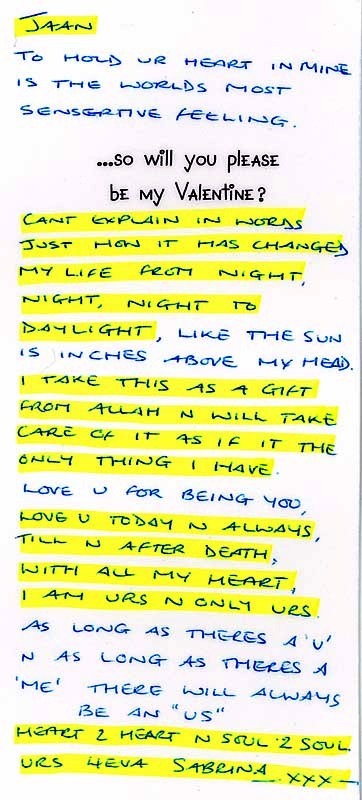 JAAN
TO HOLD UR HEART IN MINE
IS THE WORLDS MOST
SENSERTIVE FEELING.
...so will you please
be my Valentine?
CANT EXPLAIN IN WORDS
JUST HOW IT HAS CHANGED
MY LIFE FROM NIGHT,
NIGHT, NIGHT TO
DAYLIGHT, LIKE THE SUN
IS INCHES ABOVE MY HEAD.
I TAKE THIS AS A GIFT
FROM ALLAH N WILL TAKE
CARE OF IT AS IF IT THE
ONLY THING I HAVE.
LOVE U FOR BEING YOU,
LOVE U TODAY N ALWAYS,
TILL N AFTER DEATH,
WITH ALL MY HEART,
I AM URS N ONLY URS.
AS LONG AS THERES A 'U'
N AS LONG AS THERES A
'ME' THERE WILL ALWAYS
BE AN "US"
HEART 2 HEART N SOUL 2 SOUL
URS 4EVA SABRINA _ xxx _